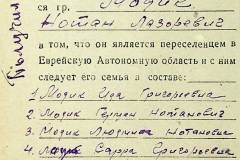 ся гр. Модик
Нотан Лазаревич
в том, что он является переселенцем в
Еврейскую Автономную область и с ним
следует его семья в составе:
1 Модик Ида Григорьевна
2 Модик Герман Нотанович
3 Модик Людмила Нотановна
4. Сарра Григорьевна
Получил